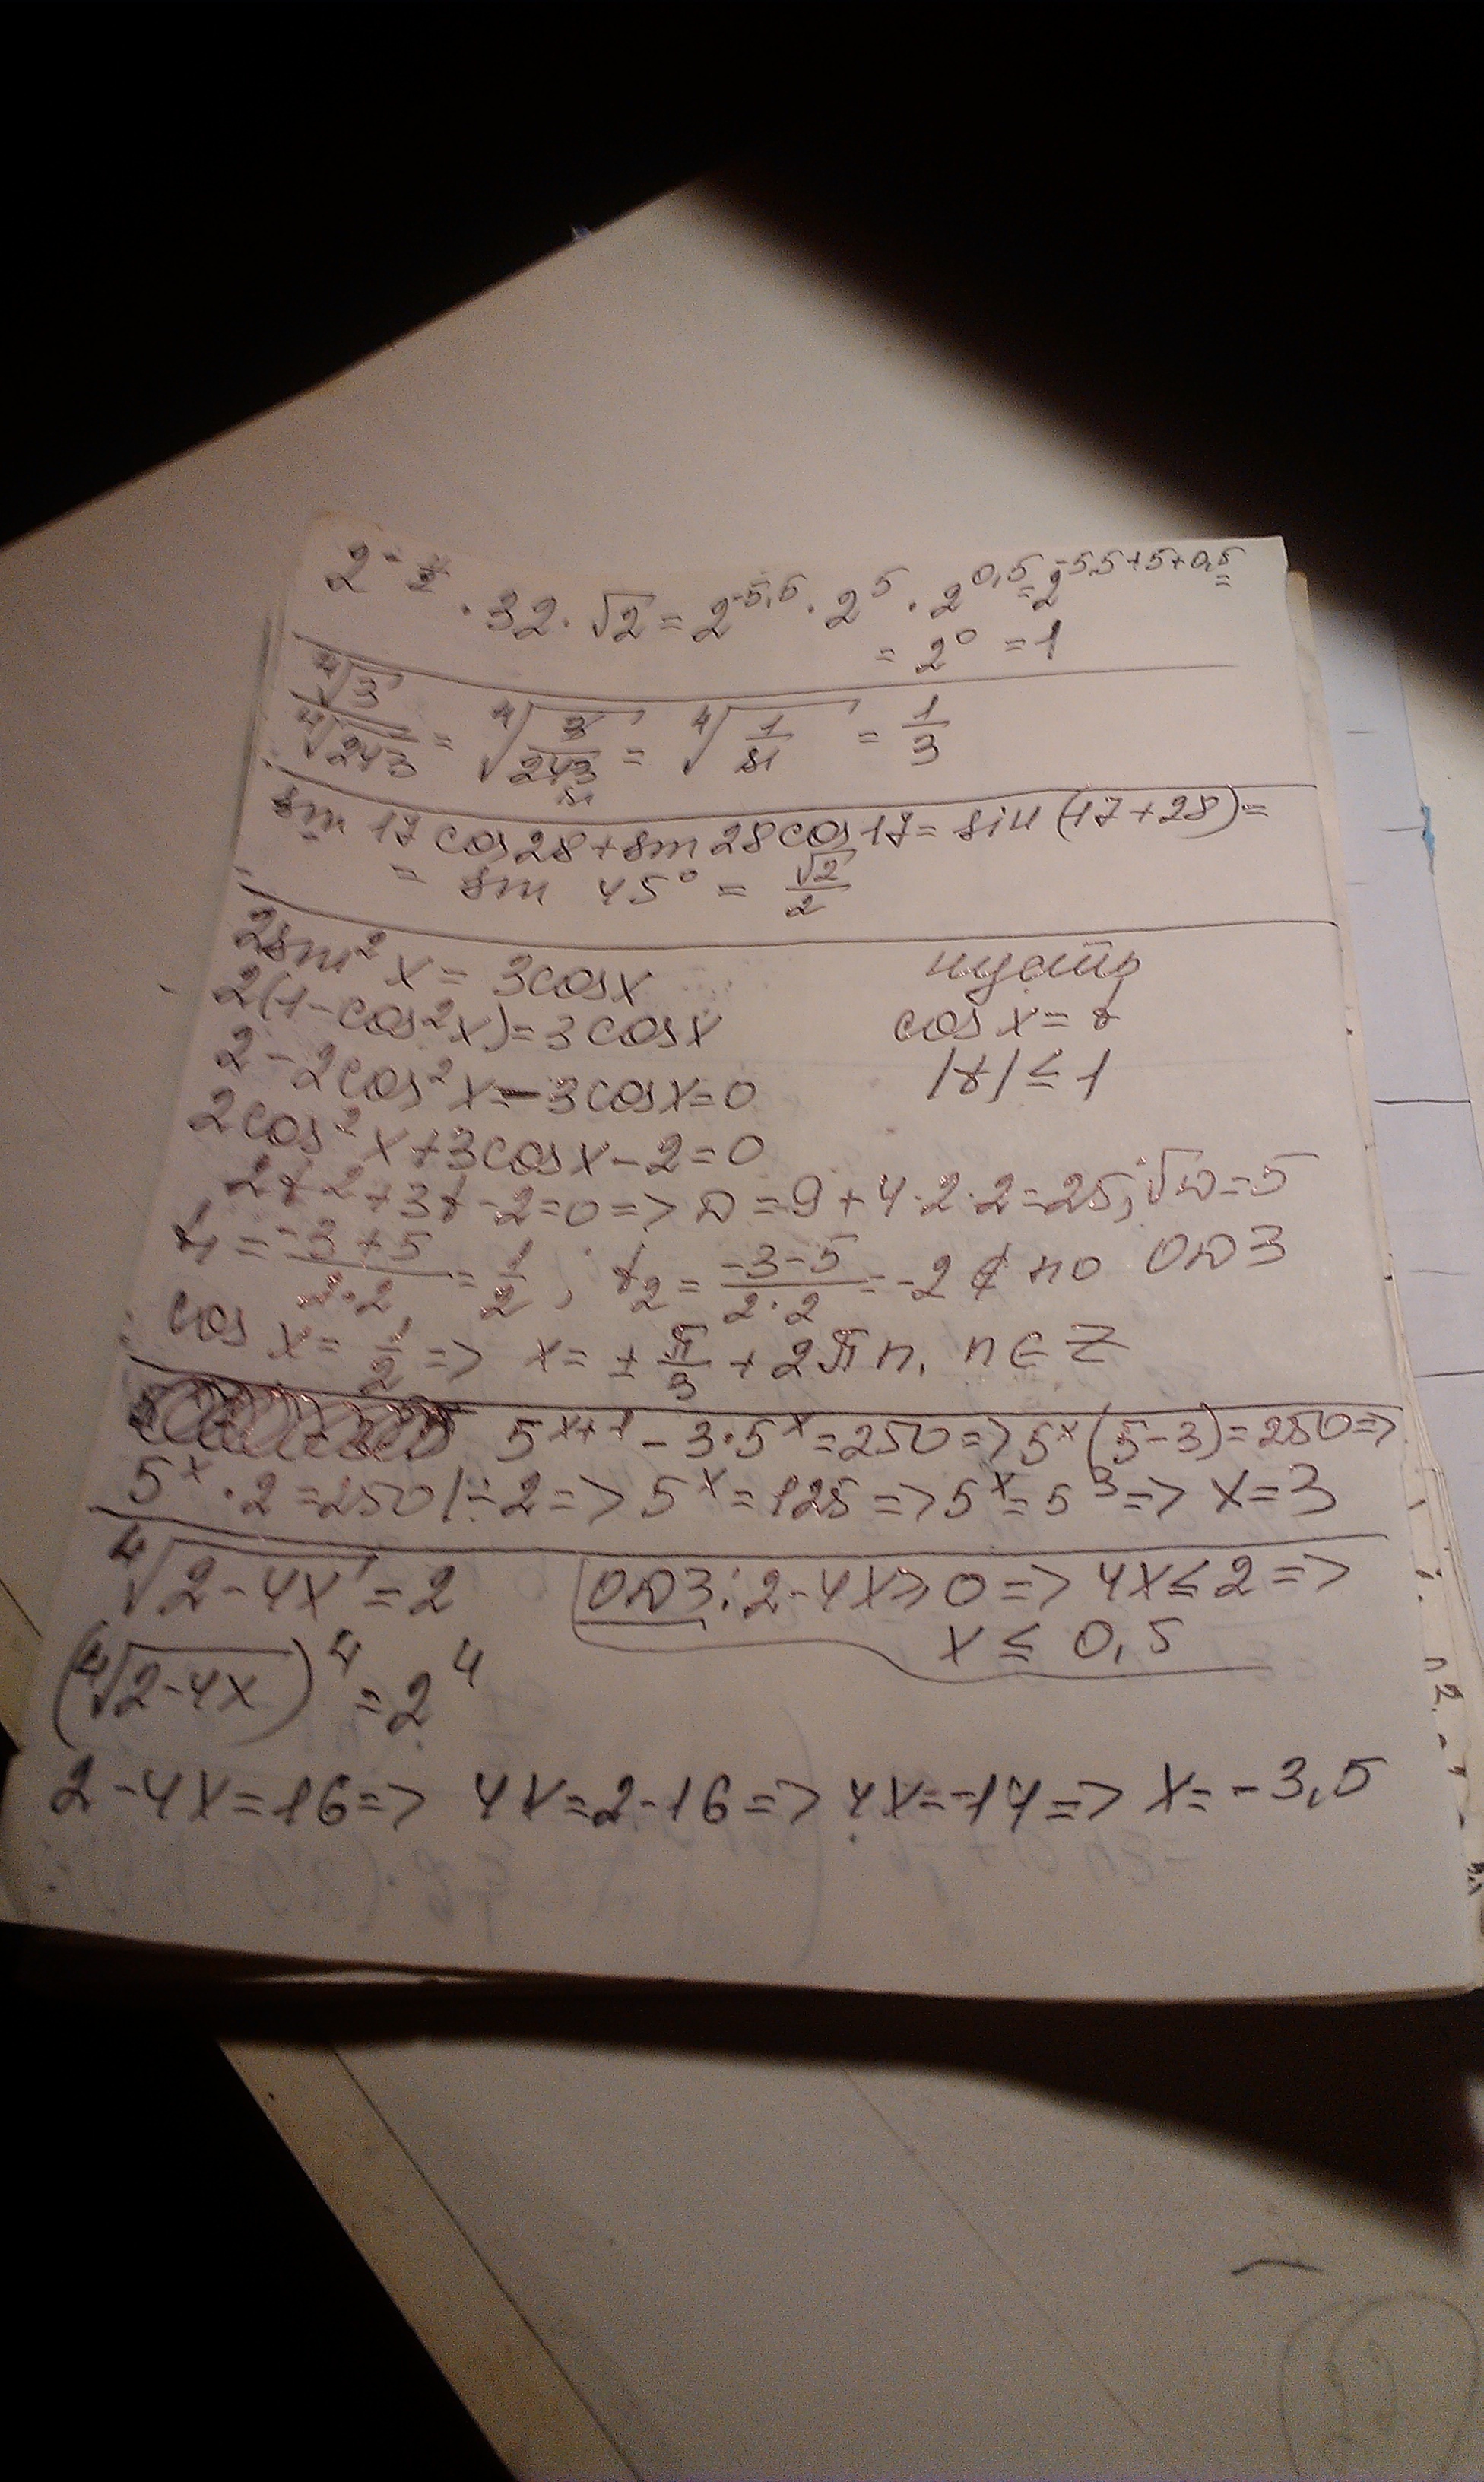 2^{-11/2} · 32 · √2 = 2^{-5,5} · 2^5 · 2^{0,5} = 2^{-5,5+5+0,5} =
= 2^0 = 1
∜3/∜243 = ∜(3/243) = ∜(1/81) = 1/3
81
sin 17 cos 28 + sin 28 cos 17 = sin (17+28) =
= sin 45° = √2/2
2sin²x = 3cosx пусть
2(1-cos²x) = 3cosx cos x = t
2 - 2cos²x - 3cosx = 0 |t| ≤ 1
2cos²x + 3cosx - 2 = 0
2t² + 3t - 2 = 0 => D = 9 + 4·2·2 = 25; √D = 5
t₁ = (-3+5)/(2·2) = 1/2; t₂ = (-3-5)/(2·2) = -2 ∉ по ОДЗ
cos x = 1/2 => x = ± π/3 + 2πn, n ∈ Z
5^{x+1} - 3·5^x = 250 => 5^x (5-3) = 250 =>
5^x · 2 = 250 | ÷ 2 => 5^x = 125 => 5^x = 5^3 => x = 3
∜(2-4x) = 2 ОДЗ: 2-4x ≥ 0 => 4x ≤ 2 =>
x ≤ 0,5
(∜(2-4x))^4 = 2^4
2-4x = 16 => 4x = 2-16 => 4x = -14 => x = -3,5